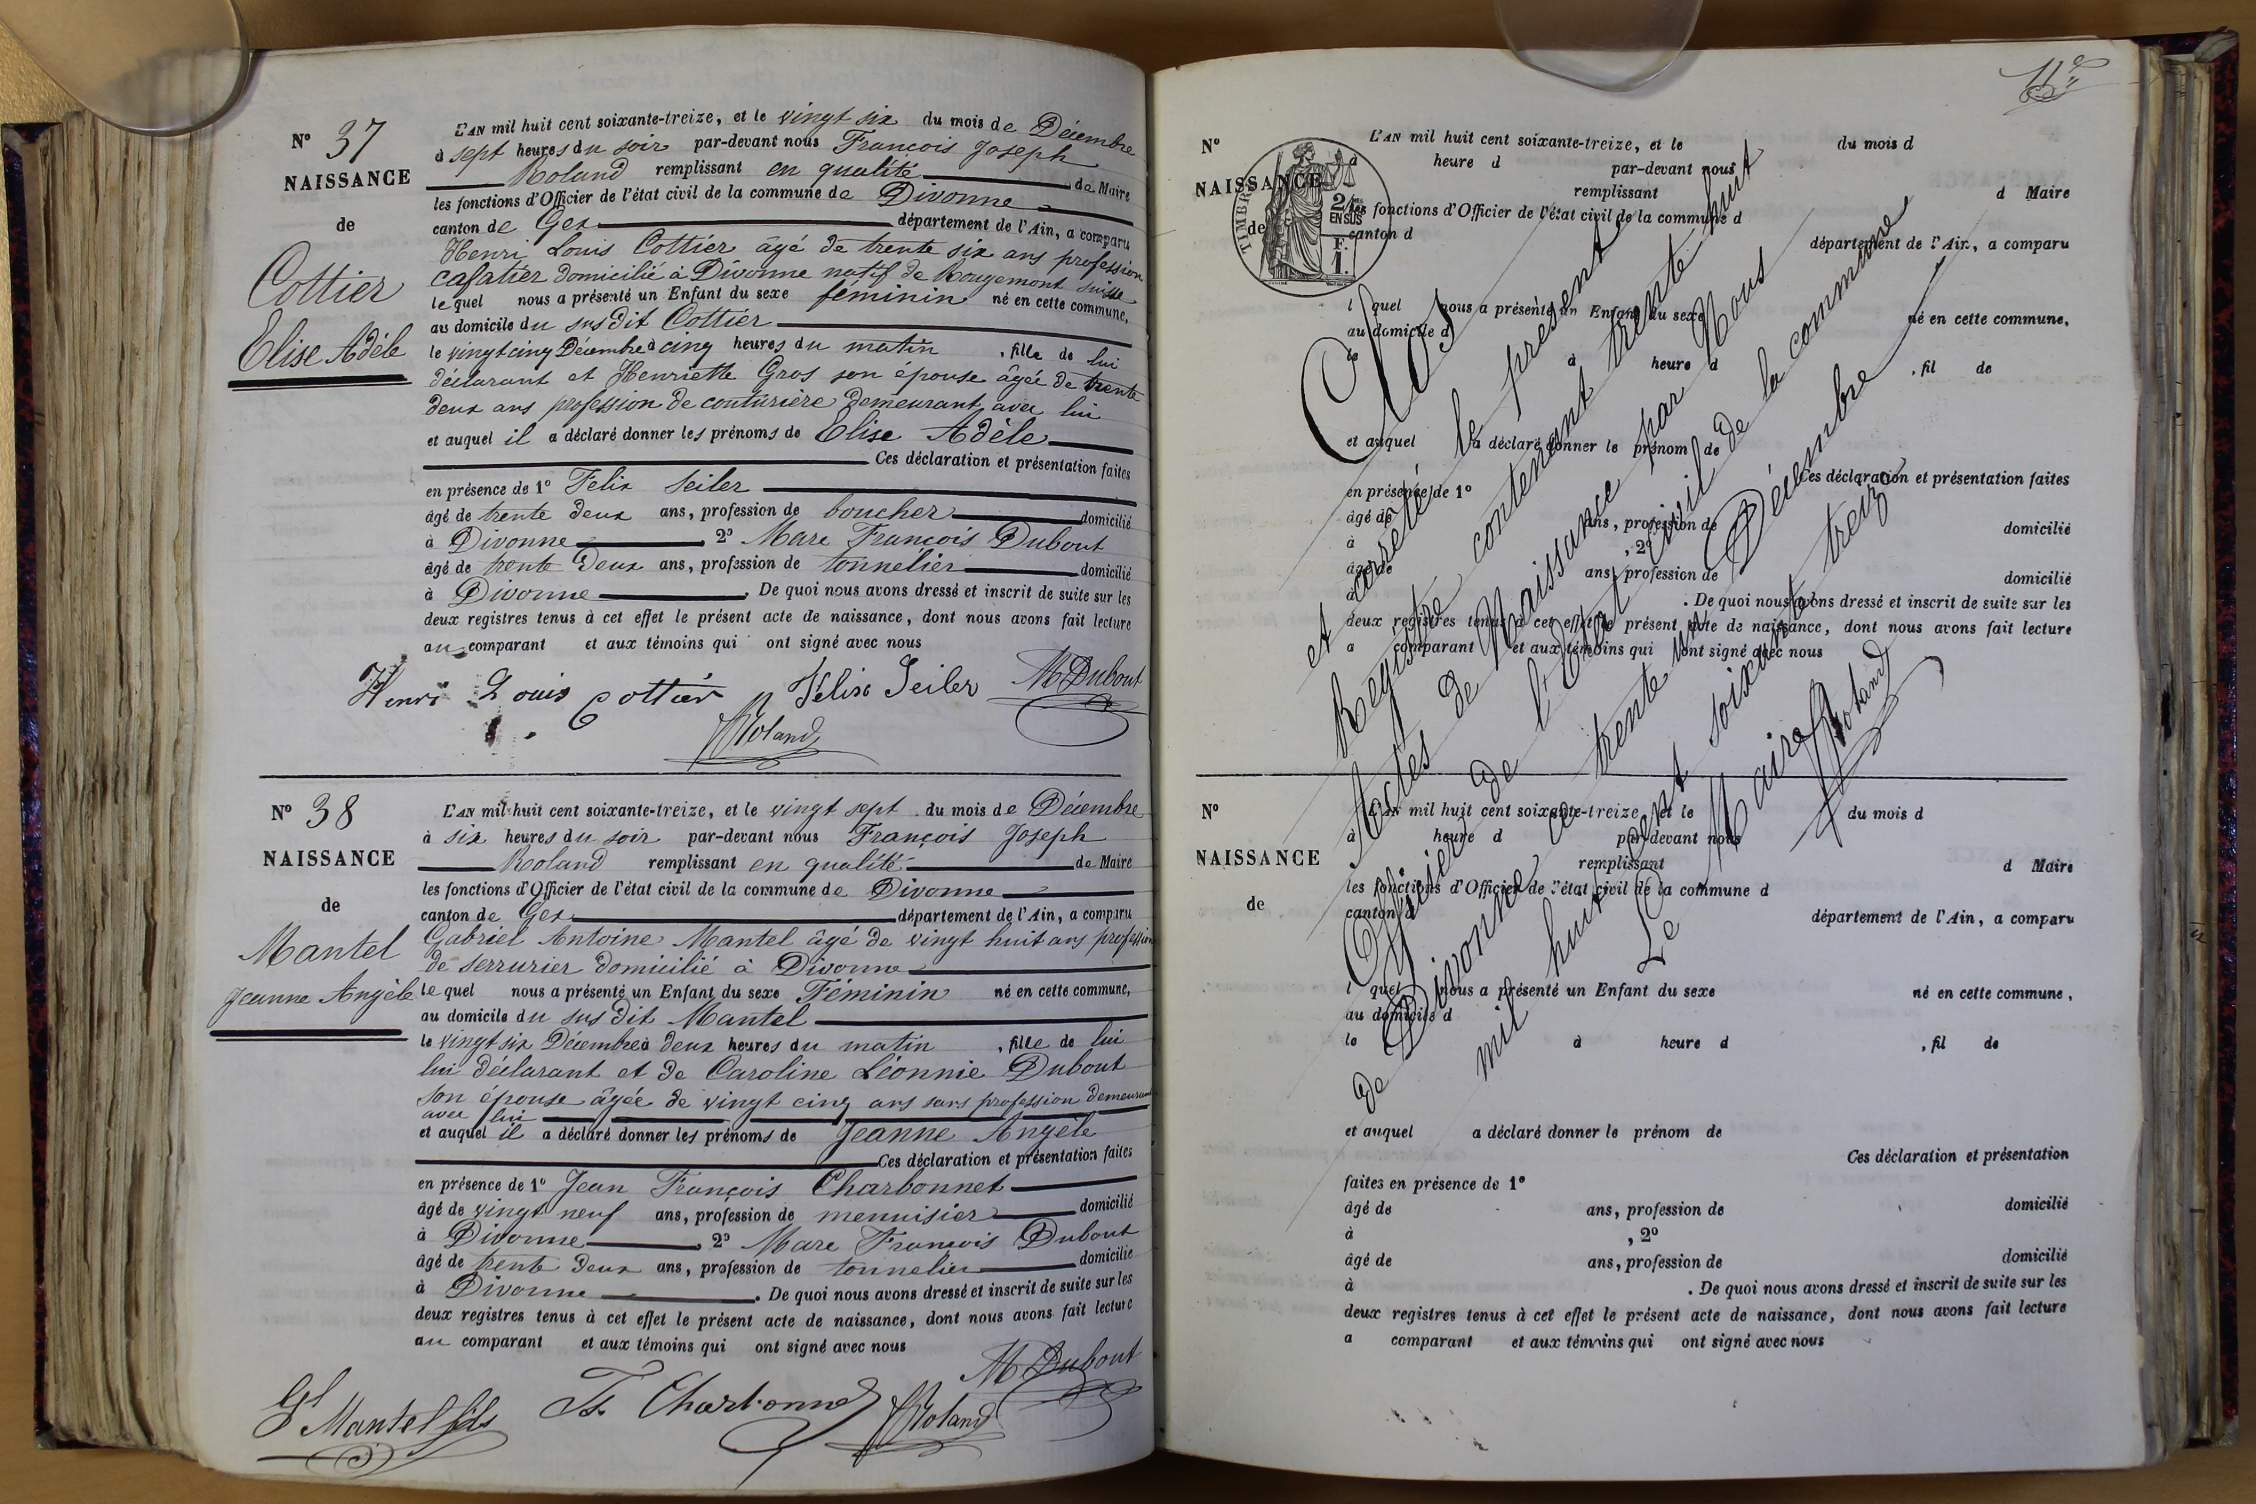 N° 37
NAISSANCE
de
Cottier
Elise Adèle
L'AN mil huit cent soixante-treize, et le vingt six du mois de Décembre
à sept heures du soir par-devant nous François Joseph
Roland remplissant en qualité de Maire
les fonctions d'Officier de l'état civil de la commune de Divonne
canton de Gex département de l'Ain, a comparu
Henri Louis Cottier âgé de trente six ans profession
cafatier domicilié à Divonne natif de Rougemont suisse
lequel nous a présenté un Enfant du sexe féminin né en cette commune,
au domicile du susdit Cottier
le vingt cinq Décembre à cinq heures du matin , fille de lui
déclarant et Henriette Gros son épouse âgée de trente
deux ans profession de couturière demeurant avec lui
et auquel il a déclaré donner les prénoms de Elise Adèle
Ces déclaration et présentation faites
en présence de 1° Felix Seiler
âgé de trente deux ans, profession de boucher domicilié
à Divonne 2° Marc François Dubout
âgé de trente deux ans, profession de tonnelier domicilié
à Divonne . De quoi nous avons dressé et inscrit de suite sur les
deux registres tenus à cet effet le présent acte de naissance, dont nous avons fait lecture
au comparant et aux témoins qui ont signé avec nous
Henri Louis Cottier Félix Seiler M Dubout
Roland
N° 38
NAISSANCE
de
Mantel
Jeanne Angèle
L'AN mil huit cent soixante-treize, et le vingt sept du mois de Décembre
à six heures du soir par-devant nous François Joseph
Roland remplissant en qualité de Maire
les fonctions d'Officier de l'état civil de la commune de Divonne
canton de Gex département de l'Ain, a comparu
Gabriel Antoine Mantel âgé de vingt huit ans profession
de serrurier domicilié à Divonne
lequel nous a présenté un Enfant du sexe Féminin né en cette commune,
au domicile du susdit Mantel
le vingt six Décembre à deux heures du matin , fille de lui
lui déclarant et de Caroline Léonnie Dubout
son épouse âgée de vingt cinq ans sans profession demeurant
avec lui
et auquel il a déclaré donner les prénoms de Jeanne Angèle
Ces déclaration et présentation faites
en présence de 1° Jean François Charbonnet
âgé de vingt neuf ans, profession de menuisier domicilié
à Divonne , 2° Marc François Dubout
âgé de trente deux ans, profession de tonnelier domicilié
à Divonne . De quoi nous avons dressé et inscrit de suite sur les
deux registres tenus à cet effet le présent acte de naissance, dont nous avons fait lecture
au comparant et aux témoins qui ont signé avec nous
M Dubout
Gl Mantel fils Fs Charbonnet Roland
N°
NAISSANCE
de
TIMBRE
2/10es
EN SUS
F.
1.
L'AN mil huit cent soixante-treize, et le du mois d
à heure d par-devant nous
remplissant d Maire
les fonctions d'Officier de l'état civil de la commune d
canton d département de l'Ain, a comparu
l quel nous a présenté un Enfant du sexe né en cette commune,
au domicile d
le à heure d , fil de
et auquel a déclaré donner le prénom de
Ces déclaration et présentation faites
en présence de 1°
âgé de ans, profession de domicilié
à , 2°
âgé de ans, profession de domicilié
à . De quoi nous avons dressé et inscrit de suite sur les
deux registres tenus à cet effet le présent acte de naissance, dont nous avons fait lecture
a comparant et aux témoins qui ont signé avec nous
Clos
et arrêté le présent
Registre contenant trente huit
Actes de Naissance par Nous
Officier de l'Etat civil de la commune
de Divonne ce trente un Décembre
mil huit cent soixante treize
Le Maire Roland
N°
NAISSANCE
de
L'AN mil huit cent soixante-treize, et le du mois d
à heure d par-devant nous
remplissant d Maire
les fonctions d'Officier de l'état civil de la commune d
canton d département de l'Ain, a comparu
l quel nous a présenté un Enfant du sexe né en cette commune,
au domicile d
le à heure d , fil de
et auquel a déclaré donner le prénom de
Ces déclaration et présentation
faites en présence de 1°
âgé de ans, profession de domicilié
à , 2°
âgé de ans, profession de domicilié
à . De quoi nous avons dressé et inscrit de suite sur les
deux registres tenus à cet effet le présent acte de naissance, dont nous avons fait lecture
a comparant et aux témoins qui ont signé avec nous